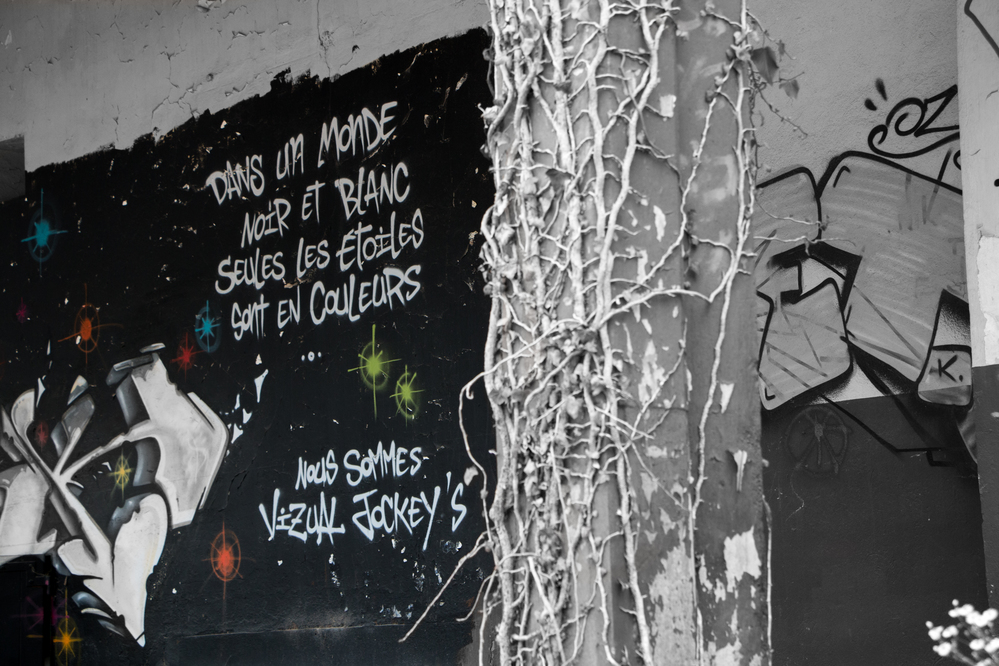 DANS UN MONDE
NOIR ET BLANC
SEULES LES ÉTOILES
SONT EN COULEURS
...
NOUS SOMMES
VIZUAL JOCKEY'S
OZ
K.